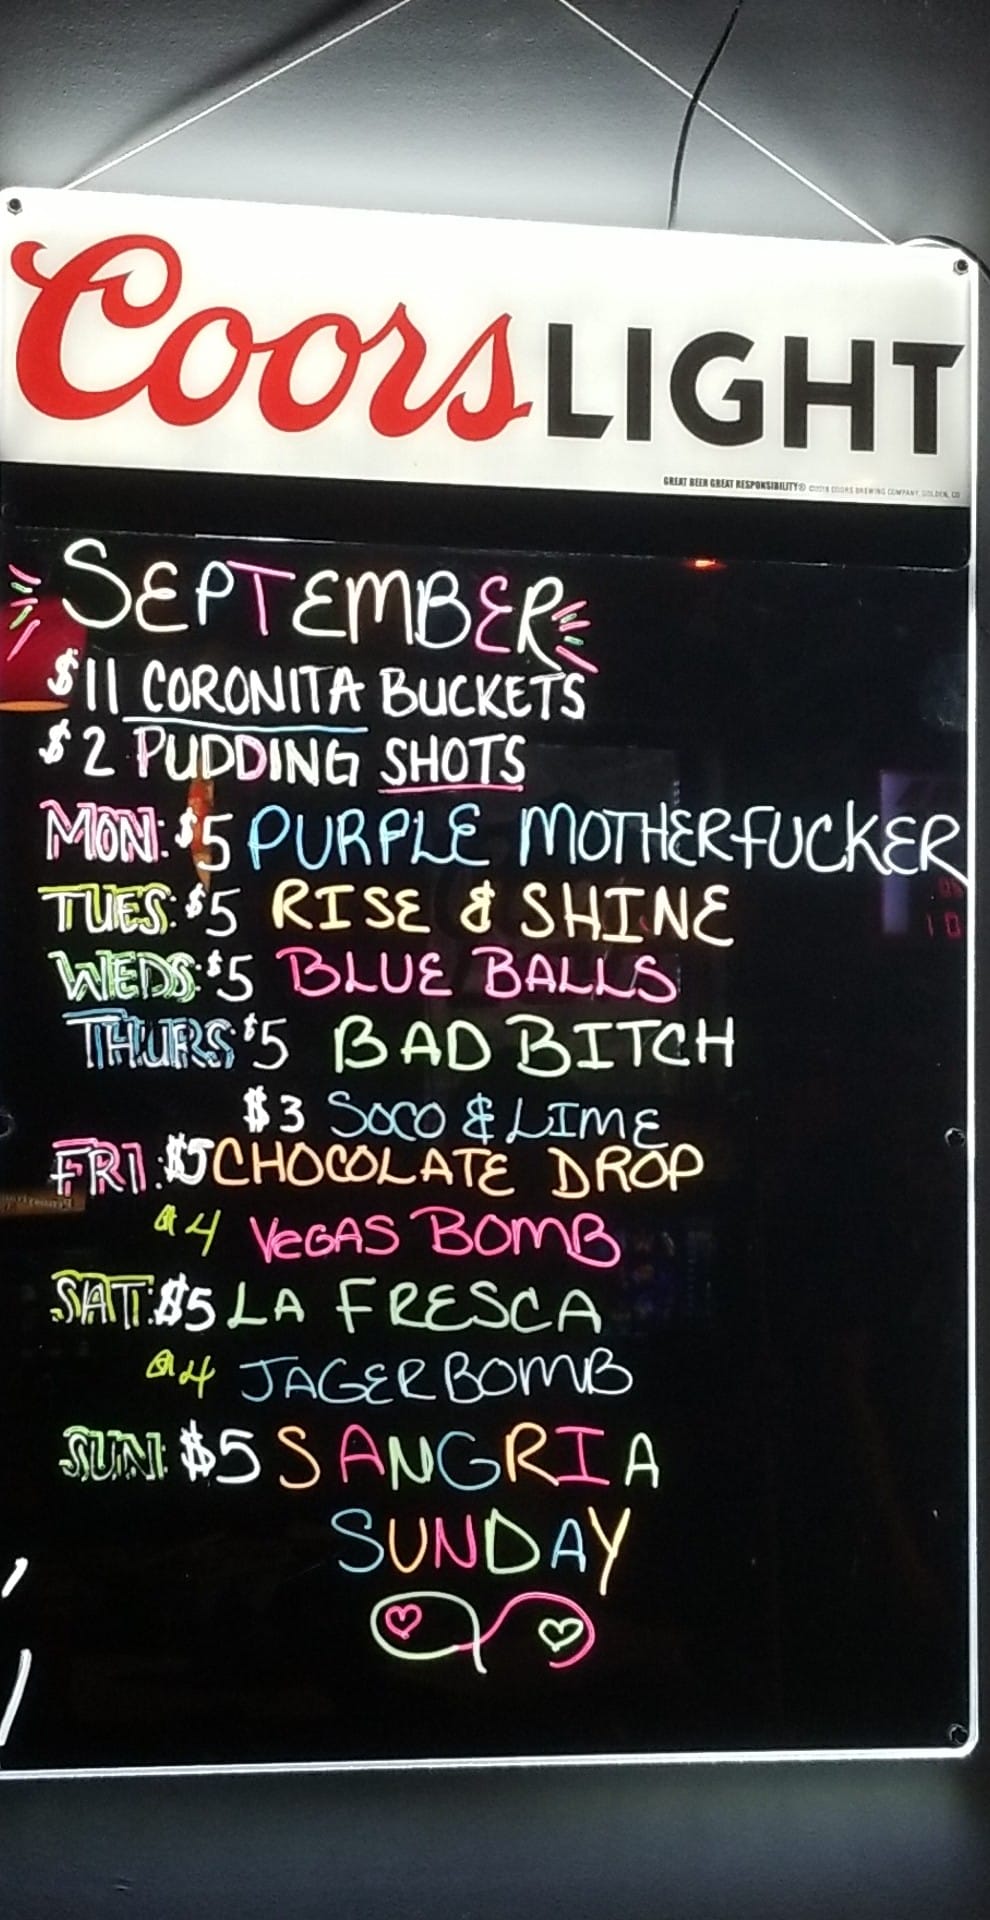 Coors LIGHT
GREAT BEER GREAT RESPONSIBILITY® ©2018 COORS BREWING COMPANY, GOLDEN, CO
SEPTEMBER
$11 CORONITA BUCKETS
$2 PUDDING SHOTS
MON: $5 PURPLE MOTHERFUCKER
TUES: $5 RISE & SHINE
WEDS: $5 BLUE BALLS
THURS $5 BAD BITCH
$3 SOCO & LIME
FRI: $5 CHOCOLATE DROP
$4 VEGAS BOMB
SAT: $5 LA FRESCA
$4 JAGERBOMB
SUN: $5 SANGRIA
SUNDAY